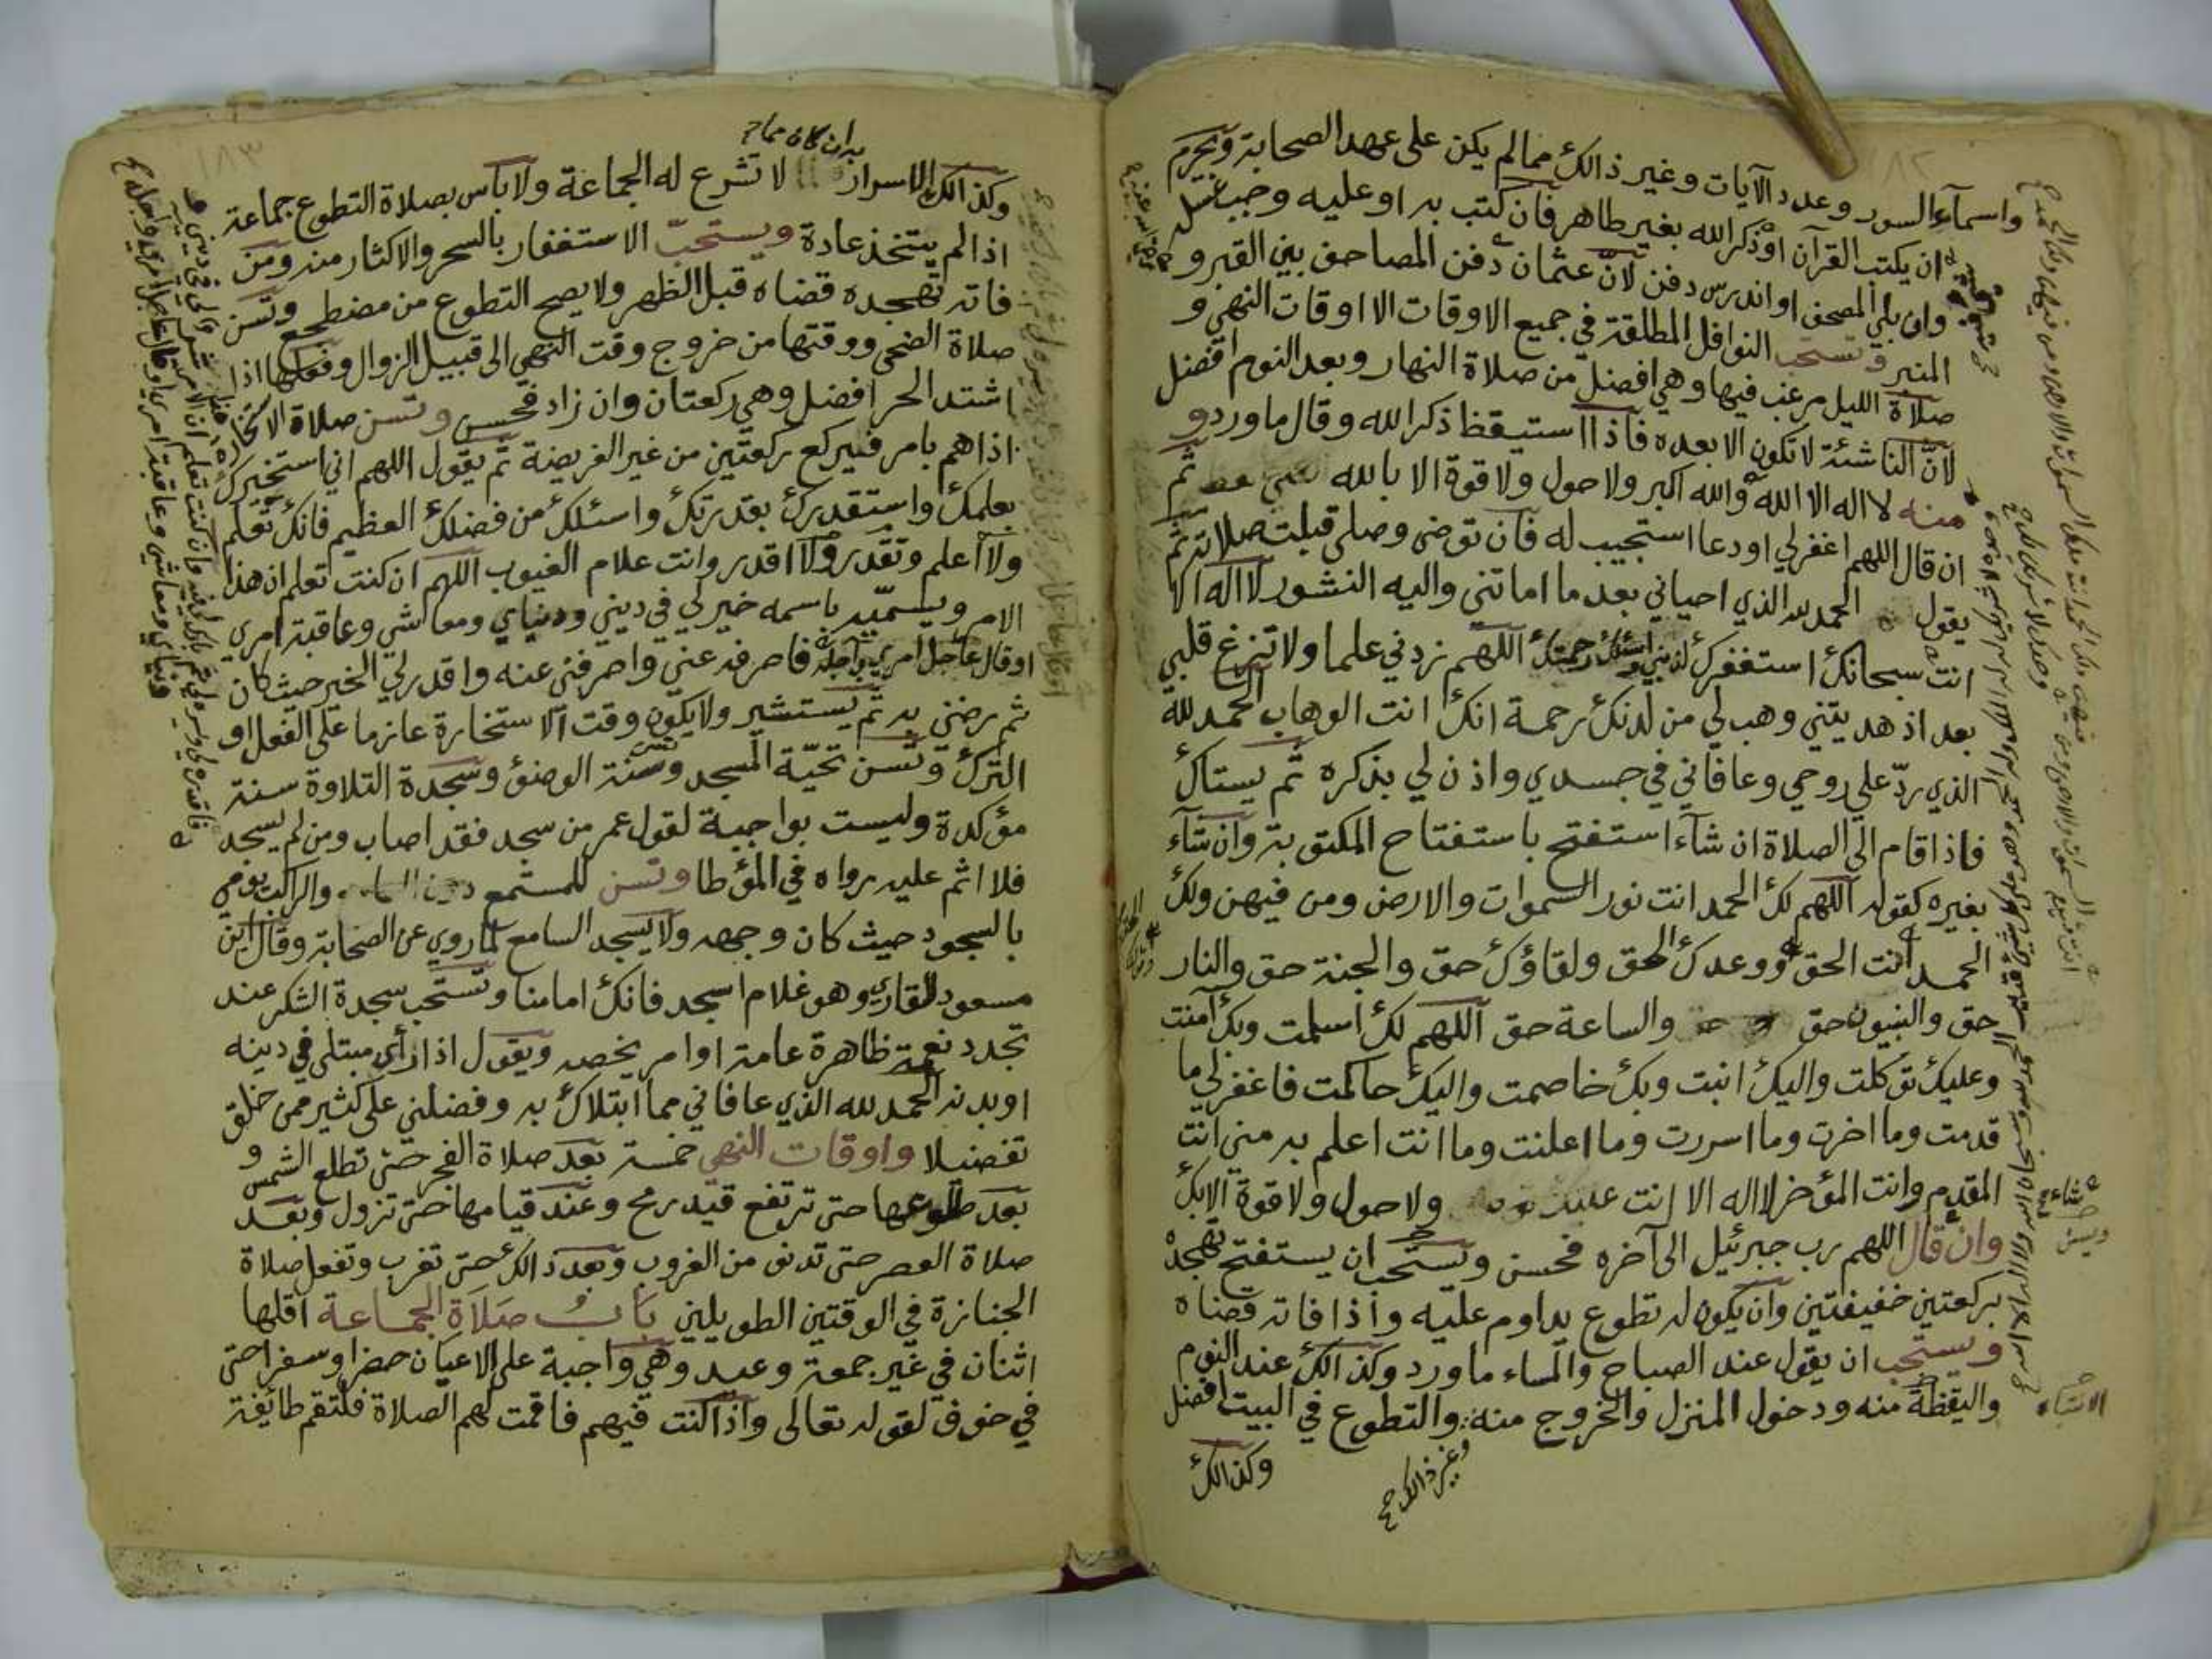 واسمآء السور وعدد الآيات وغير ذالك مما لم يكن على عهد الصحابة ويحرم
ان يكتب القرآن او ذكر الله بغير طاهر فان كتب به او عليه وجب غسله
وان بلي المصحف او اندرس دفن لان عثمان دفن المصاحف بين القبر و
المنبر وتستحب النوافل المطلقة في جميع الاوقات الا اوقات النهي و
صلاة الليل مرغب فيها وهي افضل من صلاة النهار وبعد النوم افضل
لان الناشئة لا تكون الا بعده فاذا استيقظ ذكر الله وقال ما ورد و
منه لا اله الا الله والله اكبر ولا حول ولا قوة الا بالله ثم
ان قال اللهم اغفر لي او دعا استجيب له فان توضى وصلى قبلت صلاته ثم
يقول الحمد لله الذي احياني بعد ما اماتني واليه النشور لا اله الا
انت سبحانك استغفرك لذنبي واسئلك رحمتك اللهم زدني علما ولا تزغ قلبي
بعد اذ هديتني وهب لي من لدنك رحمة انك انت الوهاب الحمد لله
الذي ردّ علي روحي وعافاني في جسدي واذن لي بذكره ثم يستاك
فاذا قام الى الصلاة ان شآء استفتح باستفتاح المكتوبة وان شآء
بغيره كقوله اللهم لك الحمد انت نور السموات والارض ومن فيهن ولك
الحمد انت الحق ووعدك الحق ولقاؤك حق والجنة حق والنار
حق والنبيون حق والساعة حق اللهم لك اسلمت وبك آمنت
وعليك توكلت واليك انبت وبك خاصمت واليك حاكمت فاغفر لي ما
قدمت وما اخرت وما اسررت وما اعلنت وما انت اعلم به مني انت
المقدم وانت المؤخر لا اله الا انت ولا حول ولا قوة الا بك
وان قال اللهم رب جبرئيل الى آخره فحسن ويستحب ان يستفتح تهجده
بركعتين خفيفتين وان يكون له تطوع يداوم عليه واذا فاته قضاه
ويستحب ان يقول عند الصباح والمساء ما ورد وكذالك عند النوم
واليقظة منه ودخول المنزل والخروج منه والتطوع في البيت افضل
وغير ذالك صح
وكذالك
به ان كان مما
وكذالك الاسرار لا تشرع له الجماعة ولا بأس بصلاة التطوع جماعة
اذا لم يتخذ عادة ويستحبّ الاستغفار بالسحر والاكثار منه ومن
فاته تهجده قضاه قبل الظهر ولا يصح التطوع من مضطجع وتسن
صلاة الضحى ووقتها من خروج وقت النهي الى قبيل الزوال وفعلها اذا
اشتد الحر افضل وهي ركعتان وان زاد فحسن وتسن صلاة الاستخارة
اذا هم بامر فيركع ركعتين من غير الفريضة ثم يقول اللهم اني استخيرك
بعلمك واستقدرك بقدرتك واسئلك من فضلك العظيم فانك تعلم
ولا اعلم وتقدر ولا اقدر وانت علام الغيوب اللهم ان كنت تعلم ان هذا
الامر ويسميه باسمه خير لي في ديني ودنياي ومعاشي وعاقبة امري
او قال عاجل امري وآجله فاصرفه عني واصرفني عنه واقدر لي الخير حيث كان
ثم رضني به ثم يستشير ولا يكون وقت الاستخارة عازما على الفعل او
الترك وتسن تحيّة المسجد وسنة الوضؤ وسجدة التلاوة سنة
مؤكدة وليست بواجبة لقول عمر من سجد فقد اصاب ومن لم يسجد
فلا اثم عليه رواه في المؤطا وتسن للمستمع والراكب يومي
بالسجود حيث كان وجهه ولا يسجد السامع لما روي عن الصحابة وقال ابن
مسعود للقاري وهو غلام اسجد فانك امامنا وتستحب سجدة الشكر عند
تجدد نعمة ظاهرة عامة او امر يخصه ويقول اذا رأى مبتلى في دينه
او بدنه الحمد لله الذي عافاني مما ابتلاك به وفضلني على كثير ممن خلق
تفضيلا واوقات النهي خمسة بعد صلاة الفجر حتى تطلع الشمس و
بعد طلوعها حتى ترتفع قيد رمح وعند قيامها حتى تزول وبعد
صلاة العصر حتى تدنو من الغروب وبعد ذالك حتى تغرب وتفعل صلاة
الجنازة في الوقتين الطويلين باب صلاة الجماعة اقلها
اثنان في غير جمعة وعيد وهي واجبة على الاعيان حضرا وسفرا حتى
في خوف لقوله تعالى واذا كنت فيهم فاقمت لهم الصلاة فلتقم طائفة